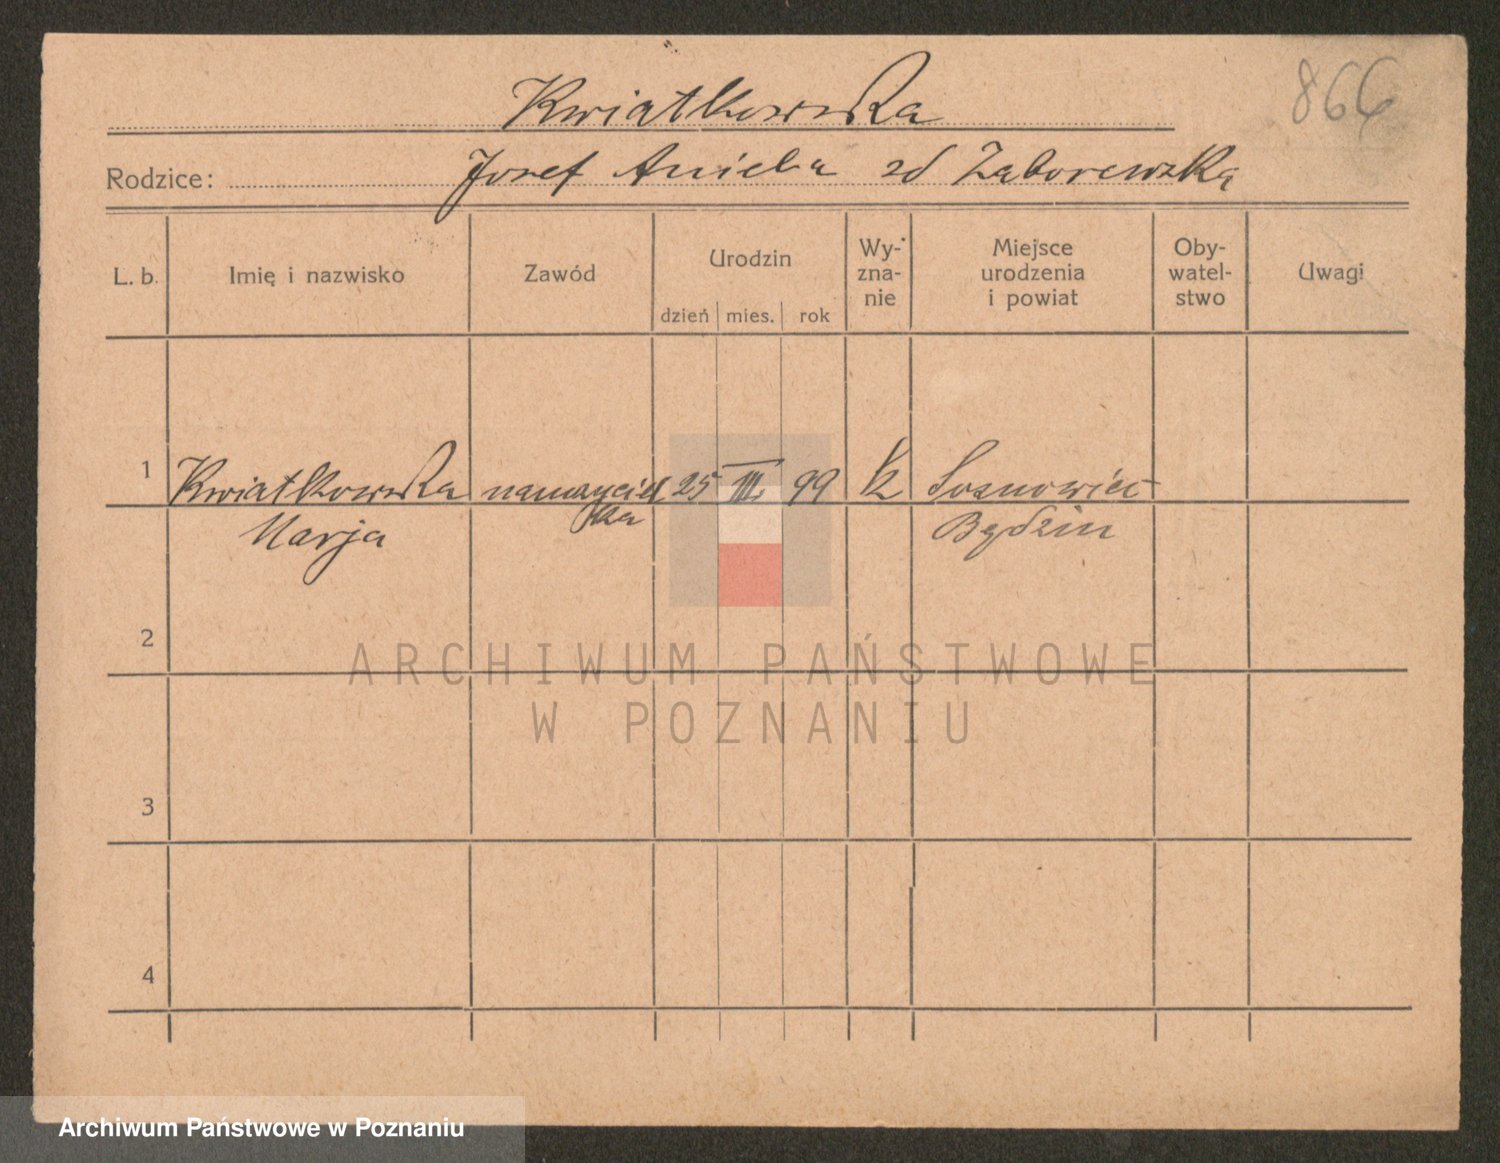 Kwiatkowska
866
Rodzice: Josef Aniela zd Zaborowska
L. b. Imię i nazwisko Zawód Urodzin dzień mies. rok Wy-zna-nie Miejsce urodzenia i powiat Oby-watel-stwo Uwagi
1 Kwiatkowska nauczyciel 25 III. 99 k Sosnowiec
Marja ka Będzin
2
ARCHIWUM PAŃSTWOWE
W POZNANIU
3
4
Archiwum Państwowe w Poznaniu